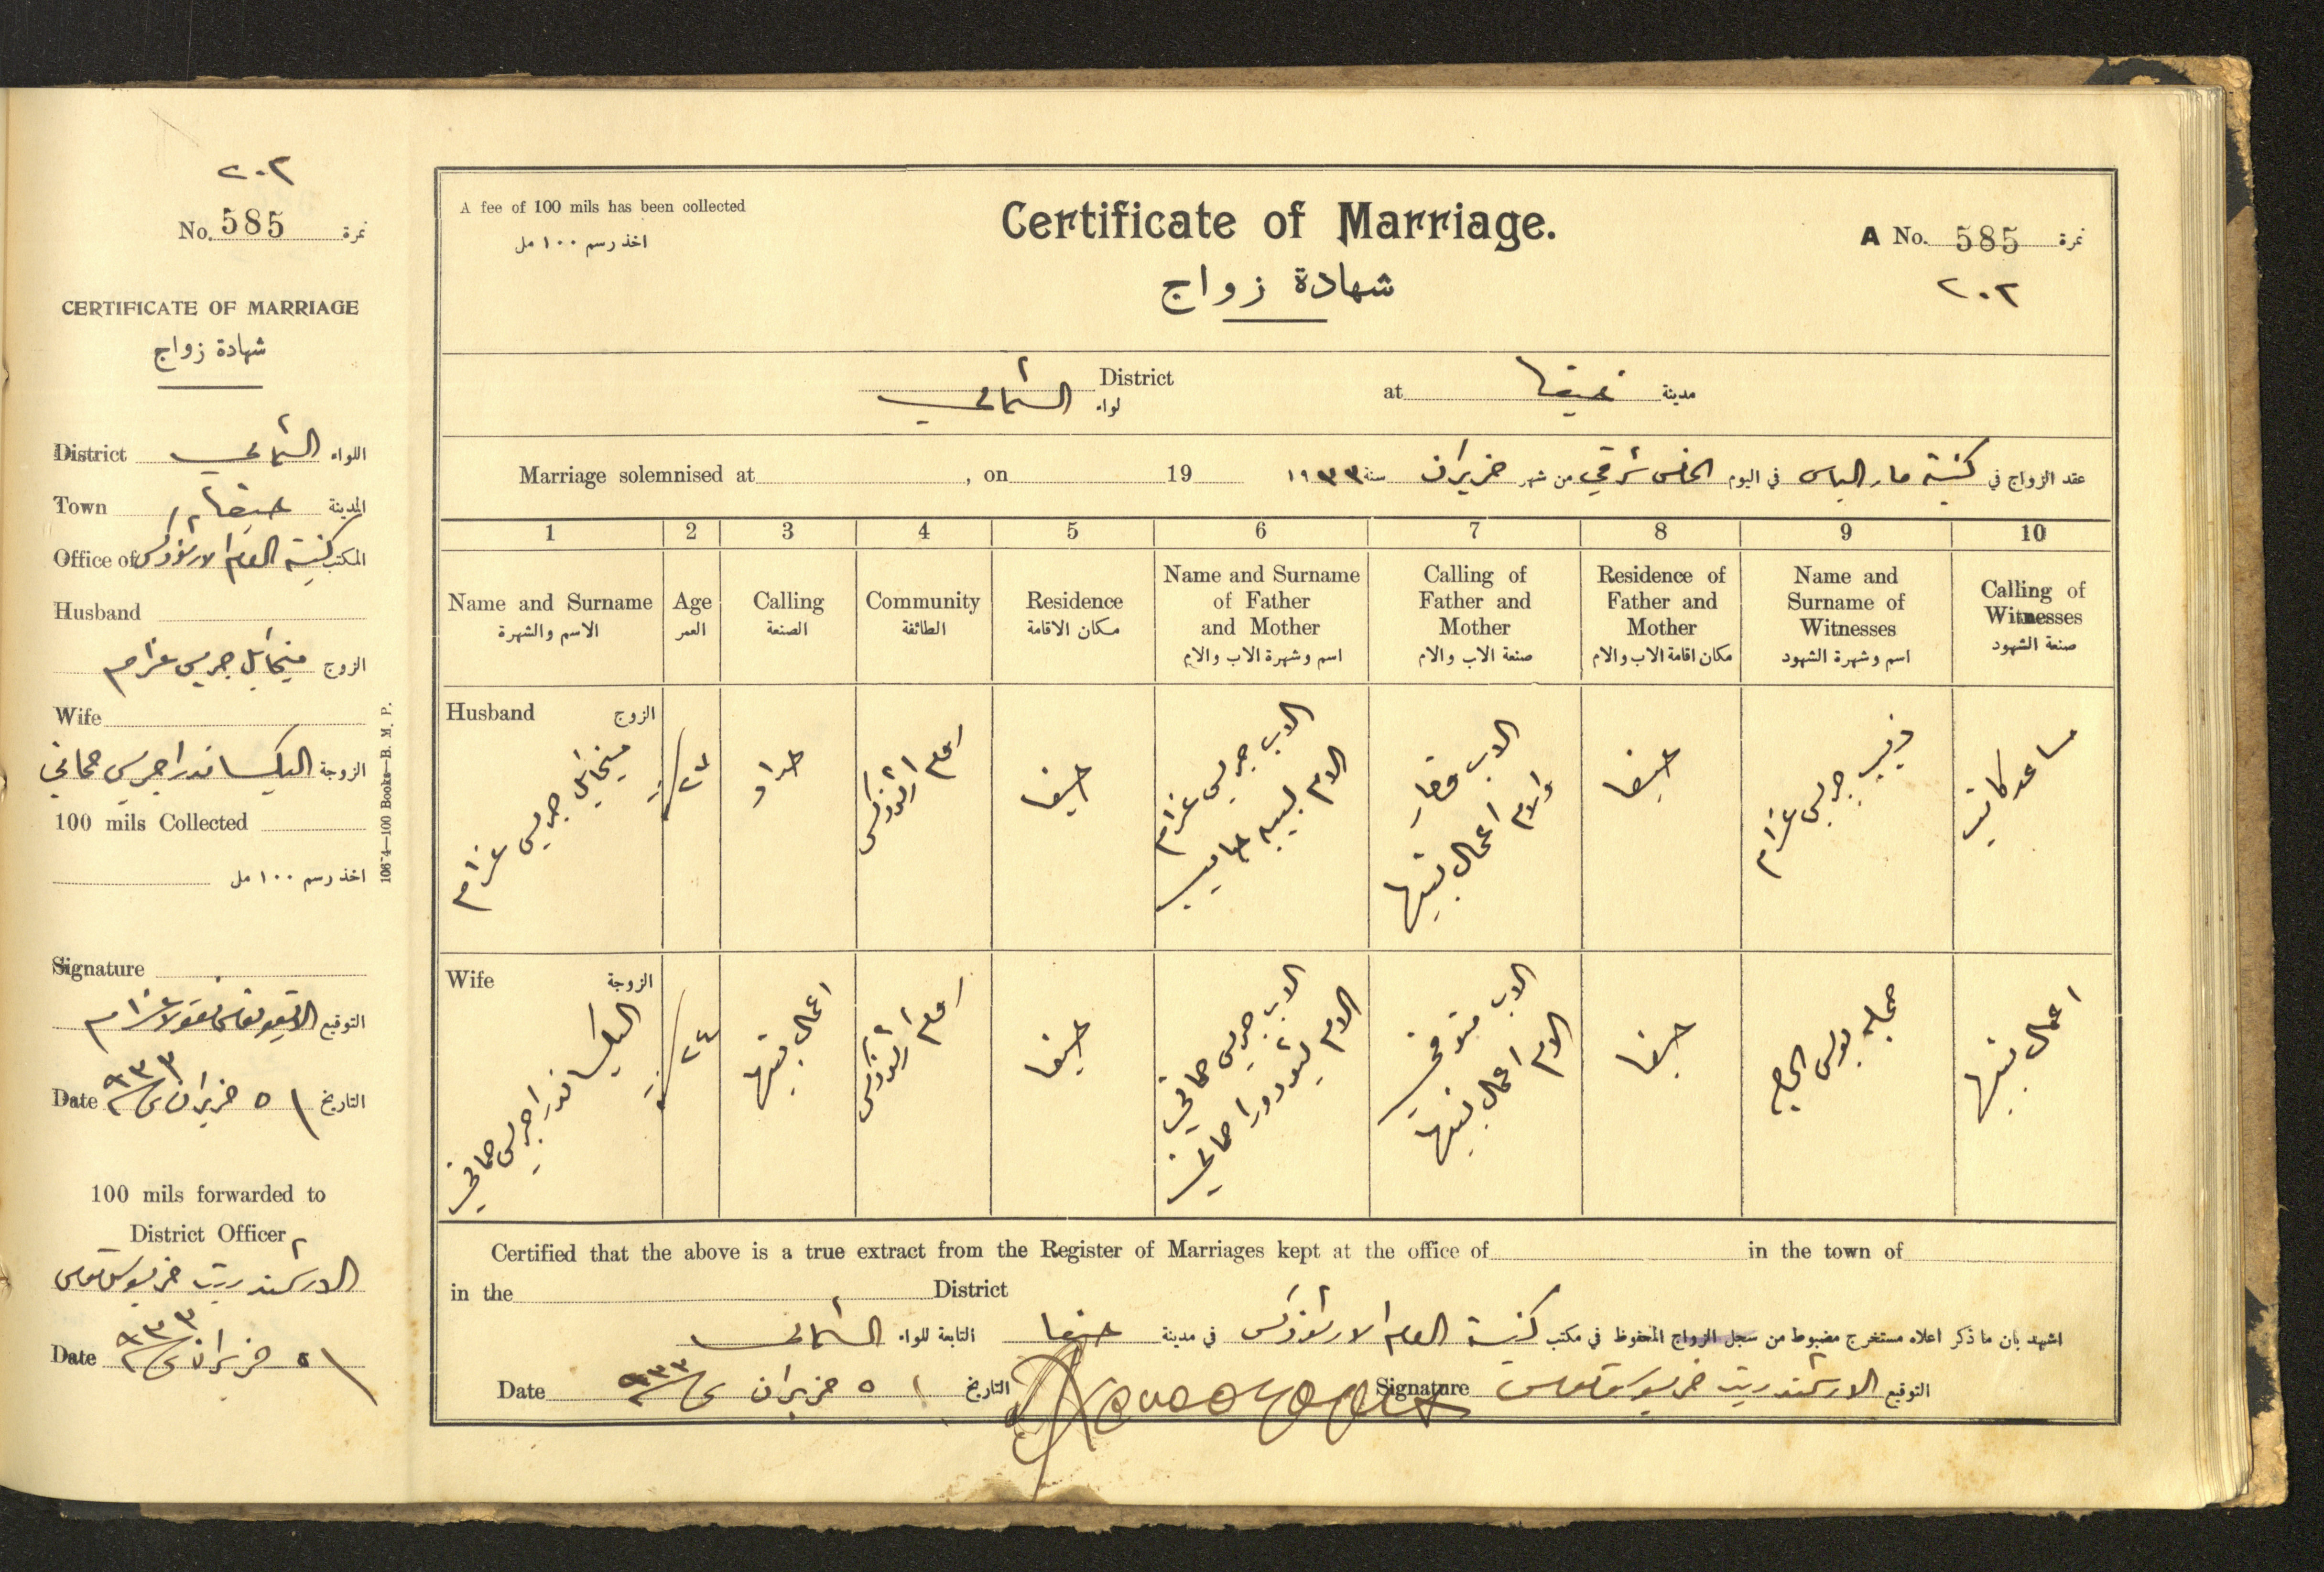 ٢٠٢
No. 585 نمرة
CERTIFICATE OF MARRIAGE
شهادة زواج
District الشمالي اللواء
Town حيفا المدينة
Office of كنيسة الروم الارثوذكس المكتب
Husband
الزوج ميخائيل جريس عزام
Wife
الزوجة اليكساندرا جريس حماتي
100 mils Collected
اخذ رسم ١٠٠ مل
Signature
التوقيع نقولا عزام
Date التاريخ ٥ حزيران ٩٣٣
100 mils forwarded to
District Officer
الارشمندريت
Date ٥ حزيران ٩٣٣
10674—100 Books—B. M. P.
A fee of 100 mils has been collected
اخذ رسم ١٠٠ مل
Certificate of Marriage.
شهادة زواج
A No. 585 نمرة
٢٠٢
District
لواء الشمالي
at حيفا مدينة
Marriage solemnised at , on 19
عقد الزواج في كنيسة مار الياس في اليوم الخامس شرقي من شهر حزيران سنة ١٩٣٣
1 2 3 4 5 6 7 8 9 10
Name and Surname
الاسم والشهرة
Age
العمر
Calling
الصنعة
Community
الطائفة
Residence
مكان الاقامة
Name and Surname
of Father
and Mother
اسم وشهرة الاب والام
Calling of
Father and
Mother
صنعة الاب والام
Residence of
Father and
Mother
مكان اقامة الاب والام
Name and
Surname of
Witnesses
اسم وشهرة الشهود
Calling of
Witnesses
صنعة الشهود
Husband الزوج
ميخائيل جريس عزام
٢٣
حداد
روم ارثوذكس
حيفا
الاب جريس عزام
الام لبيبه
الاب
والام اعمال بيتها
حيفا
جريس عزام
مساعد كاتب
Wife الزوجة
اليكساندرا جريس حماتي
٢٤
اعمال بيتها
روم ارثوذكس
حيفا
الاب جريس حماتي
الام ثيودورا حماتي
الاب متوفي
الام اعمال بيتها
حيفا
جميله بولس الحاج
اعمال بيتها
Certified that the above is a true extract from the Register of Marriages kept at the office of in the town of
in the District
اشهد بان ما ذكر اعلاه مستخرج مضبوط من سجل الزواج المحفوظ في مكتب كنيسة الروم الارثوذكس في مدينة حيفا التابعة للواء الشمالي
Date التاريخ ٥ حزيران ٩٣٣
Signature التوقيع الارشمندريت